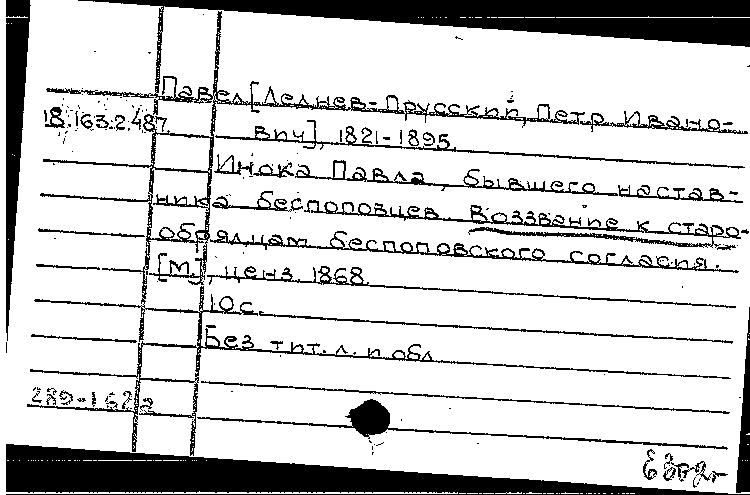 Павел [Леднев-Прусский, Петр Ивано-
18.163.2.487. вич], 1821-1895.
Инока Павла, бывшего настав-
ника беспоповцев Воззвание к старо-
обрядцам беспоповского согласия.
[М.], ценз. 1868.
10 с.
Без тит. л. и обл.
289-1 62 а